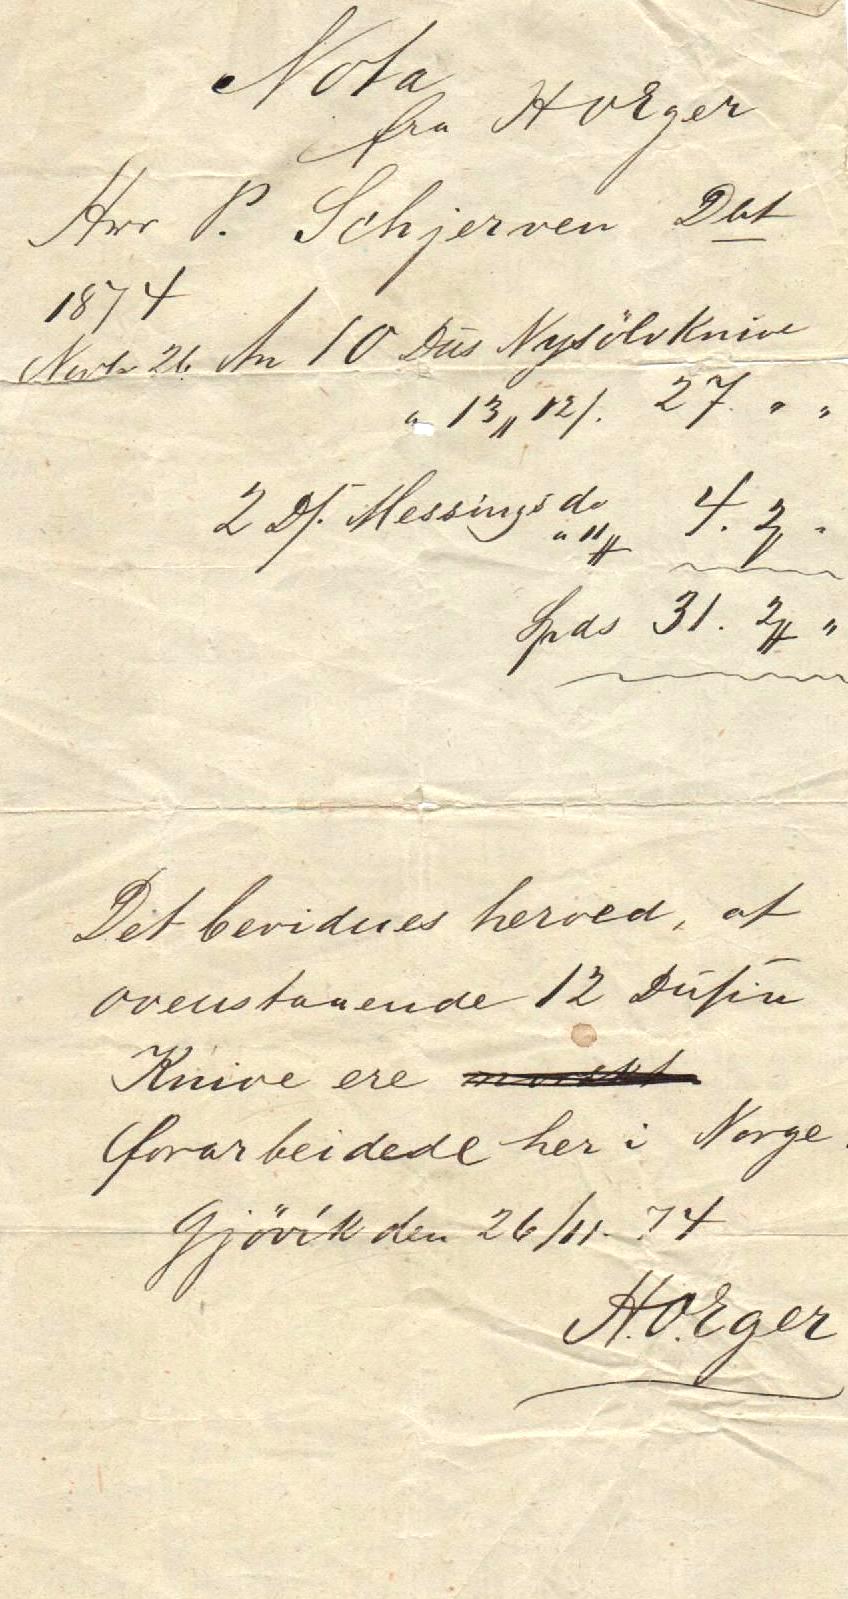 Nota
fra H O Eger
Herr P. Schjerven Dbt
1874
Novbr 26 An 10 Dus Nysölvknive
" 13 " 12 /. 27. " "
2 Ds. Messings do 4. 2 "
Spds 31. 2 "
Det bevidnes herved, at
ovenstaaende 12 Dusin
Knive ere
forarbeidede her i Norge.
Gjövik den 26/11. 74
H.O.Eger